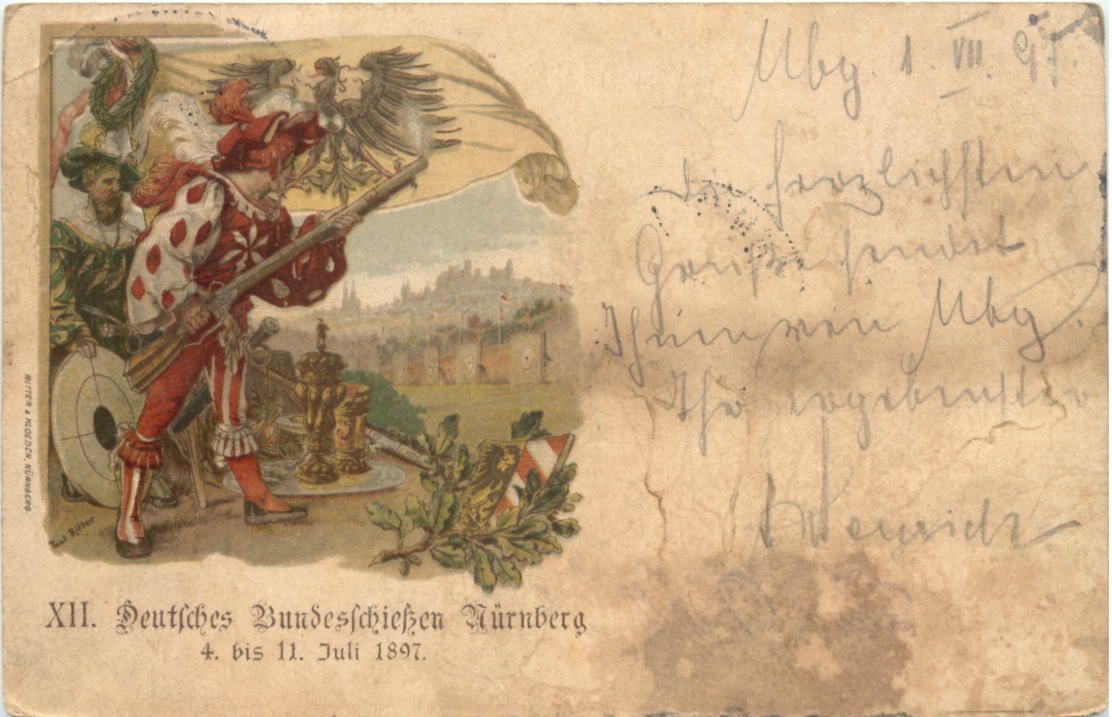 Nbg. 1. VII. 97.
die herzlichsten
Grüße sendet
Ihnen von Nbg.
Ihr ergebenster
RITTER & KLOEDEN, NÜRNBERG
Paul Ritter
XII. Deutſches Bundesſchießen Nürnberg
4. bis 11. Juli 1897.